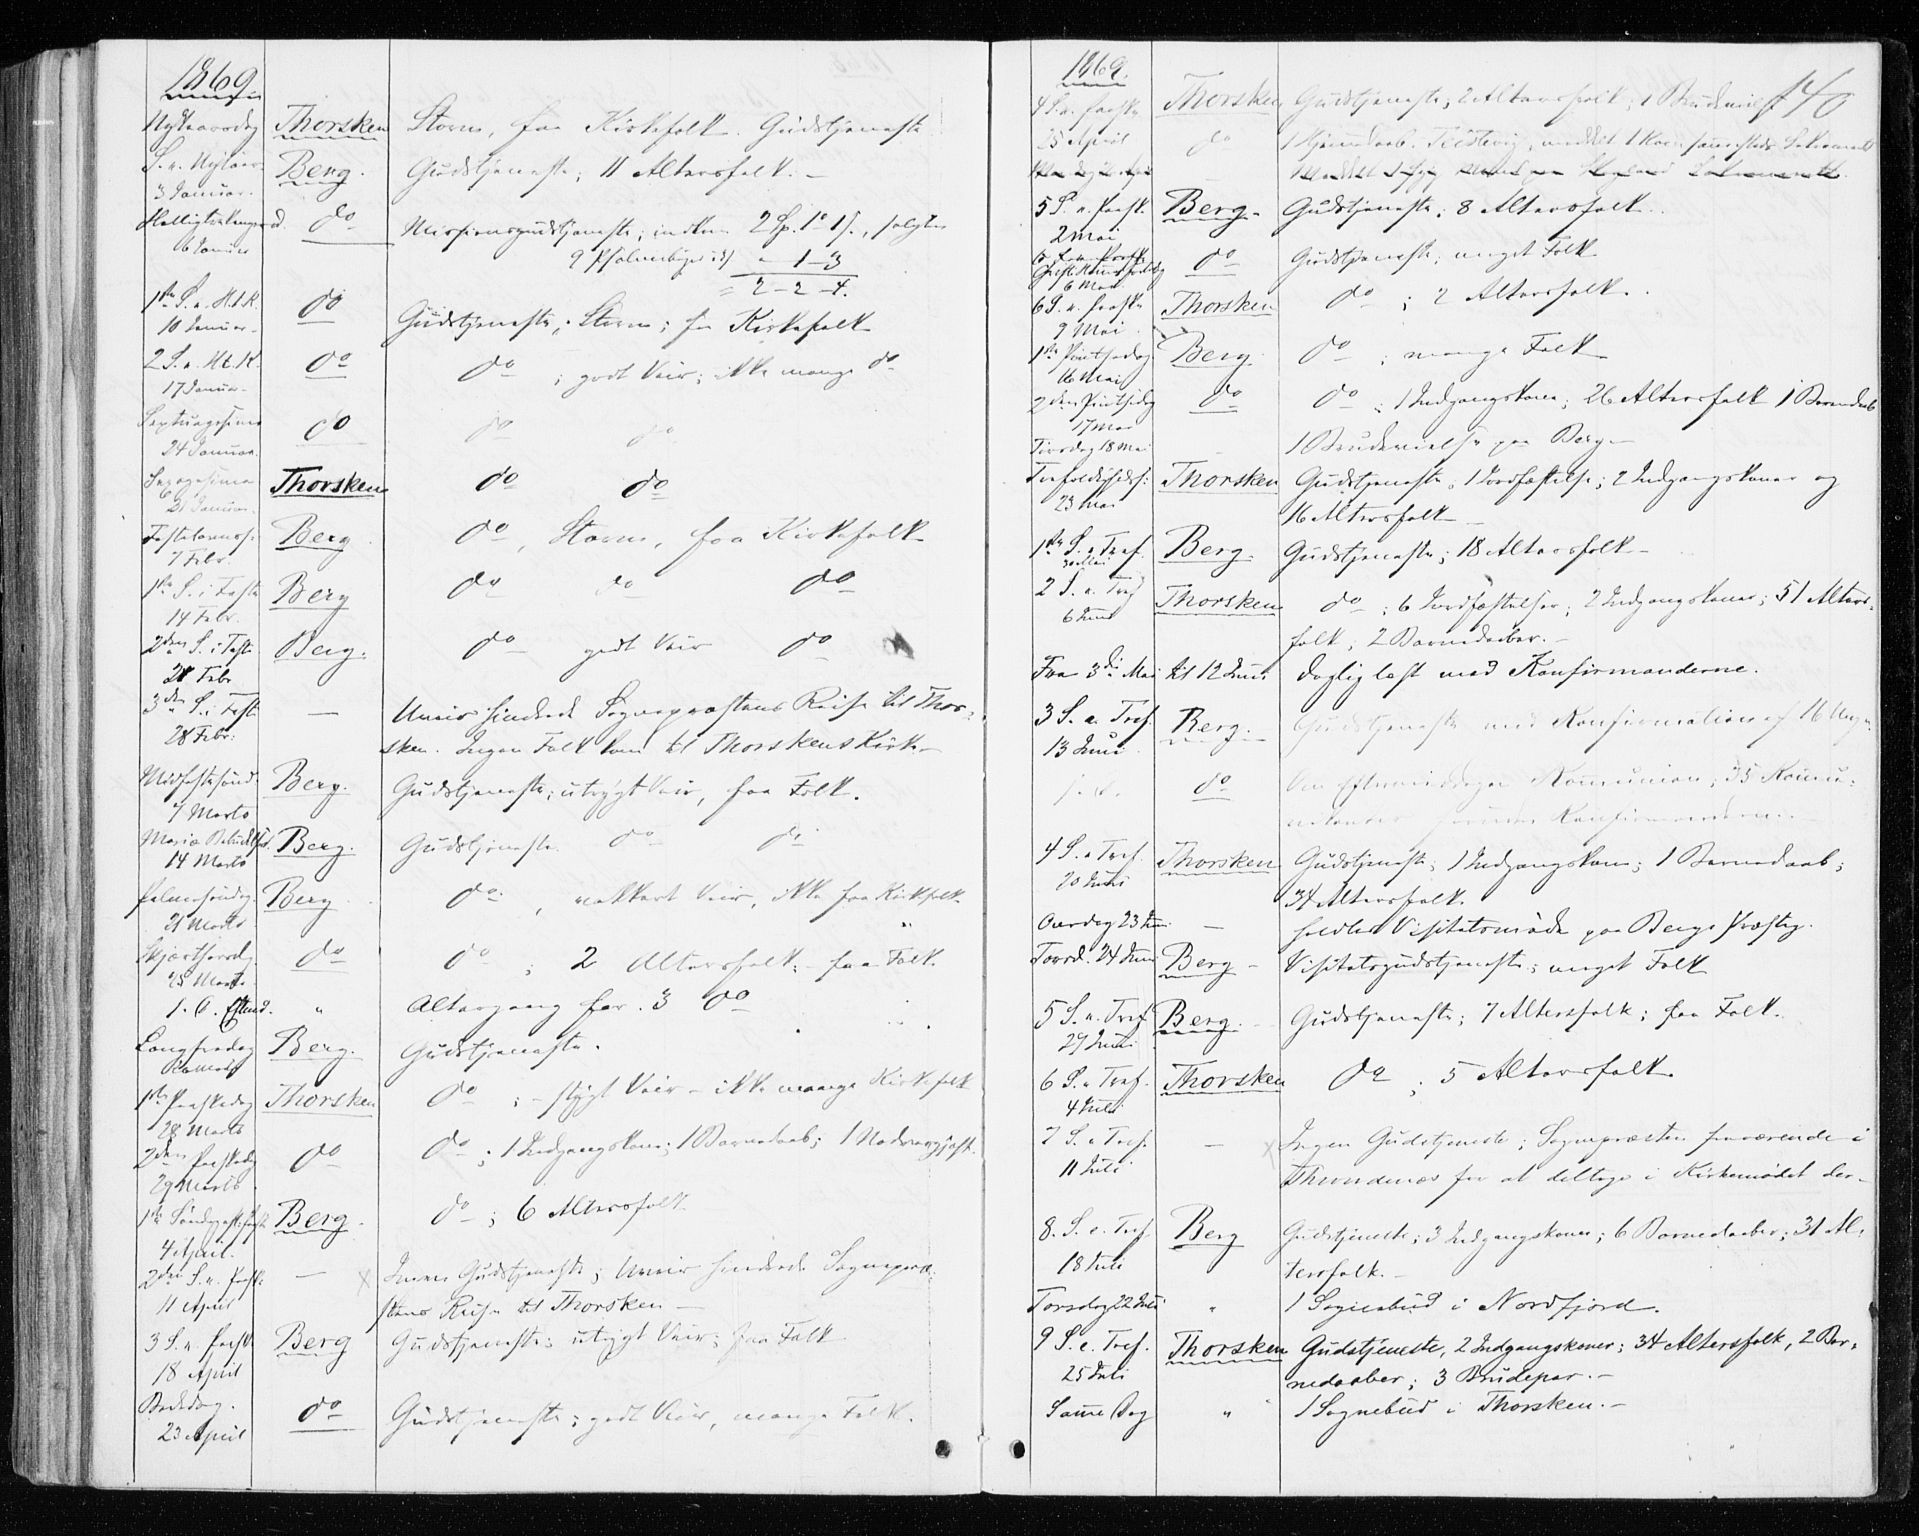 1869.
Nytaarsdag Thorsken Storm, faa Kirkefolk. Gudstjeneste
S. e. Nytaar Berg. Gudstjeneste, 11 Altersfolk. –
3 Januar.
Helligtrekonger d. do Missionsgudstjeneste; indkom 2 Sp. 1o 1 s., solgtes
6 Januar 9 Psalmebøger " – 1 – 3
= 2 – 2 – 4.
1ste S. e. H.t.K. do Gudstjeneste; Storm; faa Kirkefolk
10 Januar –
2 S. e. H.t.K. do do ; godt Veir; ikke mange do
17 Januar
Septuagesima do do do
24 Januar
Sexagesima Thorsken do do
31 Januar.
Fastelavnss: Berg do , Storm, faa Kirkefolk
7 Febr.
1ste S. i Faste Berg do do do
14 Febr.
2den S. i Faste Berg. do godt Veir do
21 Febr
3die S. i Faste — Uveir hindrede Sognepræstens Reise til Thor-
28 Febr: sken. Ingen Folk kom til Thorskens Kirke –
Midfastesönd. Berg. Gudstjeneste; utrygt Veir, faa Folk.
7 Marts
Mariæ Bebudelsesd. Berg. Gudstjeneste. do do
14 Marts
Palmesöndag Berg do , vakkert Veir, ikke faa Kirkefolk.
21 Marts
Skjærthorsdg. do do ; 2 Altersfolk; faa Folk.
25 Marts
s. D. Eftmd. " Altergang for 3 do
Langfredag Berg. Gudstjeneste.
26 Marts
1ste Paaskedag Thorsken do ; – stygt Veir – ikke mange Kirkefolk
28 Marts
2den Paaskedag do do ; 1 Indgangskone; 1 Barnedaab;
29 Marts
1ste Söndg. eft. Paaske Berg. do ; 6 Altersfolk
4 April.
2den S. e. Paaske — x Ingen Gudstjeneste; Uveir hindrede Sognepræ-
11 April stens Reise til Thorsken –
3 S. e. Paaske Berg Gudstjeneste; utrygt Veir; faa Folk
18 April
Bededag. do Gudstjeneste; godt Veir, mange Folk.
23 April
1869. 140
4 S. e. Paaske Thorsken Gudstjeneste; 2 Altersfolk; 1 Brudevielse
25 April do 1 Hjemmedaab
5 S. e. Paaske Berg – Gudstjeneste; 8 Altersfolk.
2 Mai
Christi Himmelfartsdag do Gudstjeneste; meget Folk
6 Mai
6 S. e. Paaske Thorsken do ; 2 Altersfolk.
9 Mai
1ste Pintsedag Berg. do ; mange Folk
16 Mai
2den Pintsedag do do ; 1 Indgangskone; 26 Altersfolk 1 Barnedaab
17 Mai
Tirsdag 18 Mai 1 Brudevielse paa Berg –
Trefoldighedsf: Thorsken Gudstjeneste, 1 Jordfæstelse; 2 Indgangskoner og
23 Mai 16 Altersfolk –
1ste S. e. Tref. Berg. Gudstjeneste; 18 Altersfolk –
30 Mai
2 S. e. Tref Thorsken do ; 6 Jordfæstelser; 2 Indgangskoner; 51 Alters-
6 Juni folk; 2 Barnedaaber. –
Fra 3die Mai til 12 Juni daglig læst med Konfirmanderne.
3 S. e. Tref. Berg. Gudstjeneste med Konfirmation af 16 Unge
13 Juni
s. D. do Om Eftermiddagen Kommunion; 35 Kommu-
nikanter foruden Konfirmanderne. –
4 S. e. Tref. Thorsken Gudstjeneste; 1 Indgangskone; 1 Barnedaab;
20 Juni 34 Altersfolk.
Onsdag 23 Juni – holdtes Visitatsmöde paa Bergs Præstg.
Torsd. 24 Juni Berg – Visitatsgudstjeneste; meget Folk
5 S. e. Tref. Berg. – Gudstjeneste; 7 Altersfolk; faa Folk.
27 Juni
6 S. e. Tref. Thorsken do ; 5 Altersfolk.
4 Juli
7 S. e. Tref. – x Ingen Gudstjeneste; Sognepræsten fraværende i
11 Juli Throndenæs for at deltage i Kirkemødet der –
8. S. e. Tref Berg Gudstjeneste; 3 Indgangskoner; 6 Barnedaaber; 31 Al-
18 Juli tersfolk. –
Torsdag 22 Juli " 1 Sognebud i Nordfjord.
9 S. e. Tref. Thorsken Gudstjeneste, 2 Indgangskoner; 34 Altersfolk, 2 Bar-
25 Juli nedaaber; 3 Brudepar. –
Samme Dag " 1 Sognebud i Thorsken. –